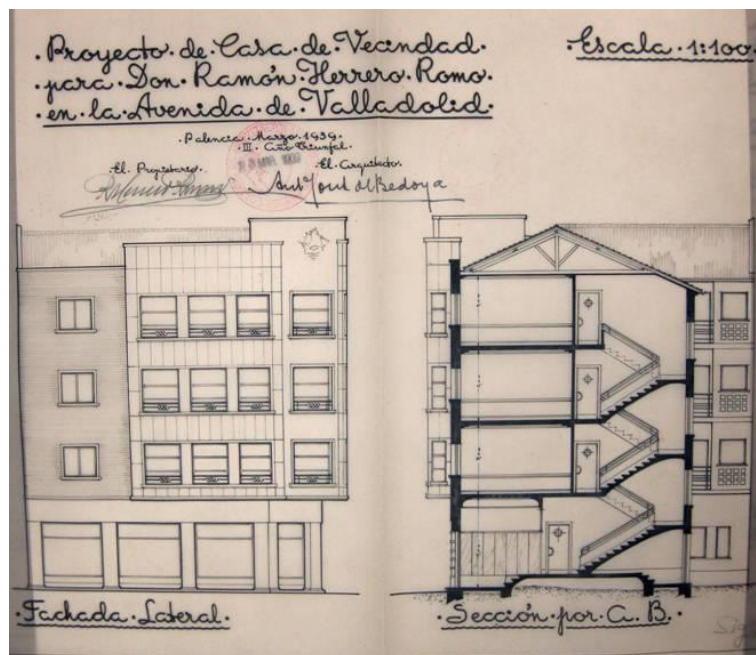 ·Proyecto·de·Casa·de·Vecindad·
·para·Don·Ramón·Herrero·Romo·
·en·la·Avenida·de·Valladolid·
·Escala·1:100·
·Palencia·Marzo·1939·
·III·Año·Triunfal·
·El·Propietario·
·El·Arquitecto·
·Fachada·Lateral·
·Sección·por·A·B·